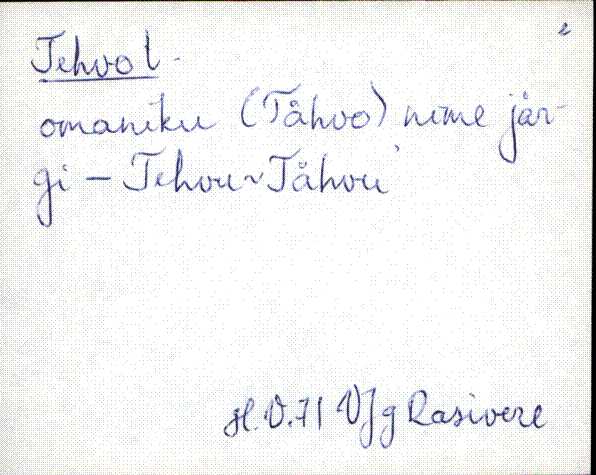 2
Tehvot.
omaniku (Tåhvo) nime jär-
gi – Tehvu ~ Tåhvu
H.V.71 VJg Rasivere